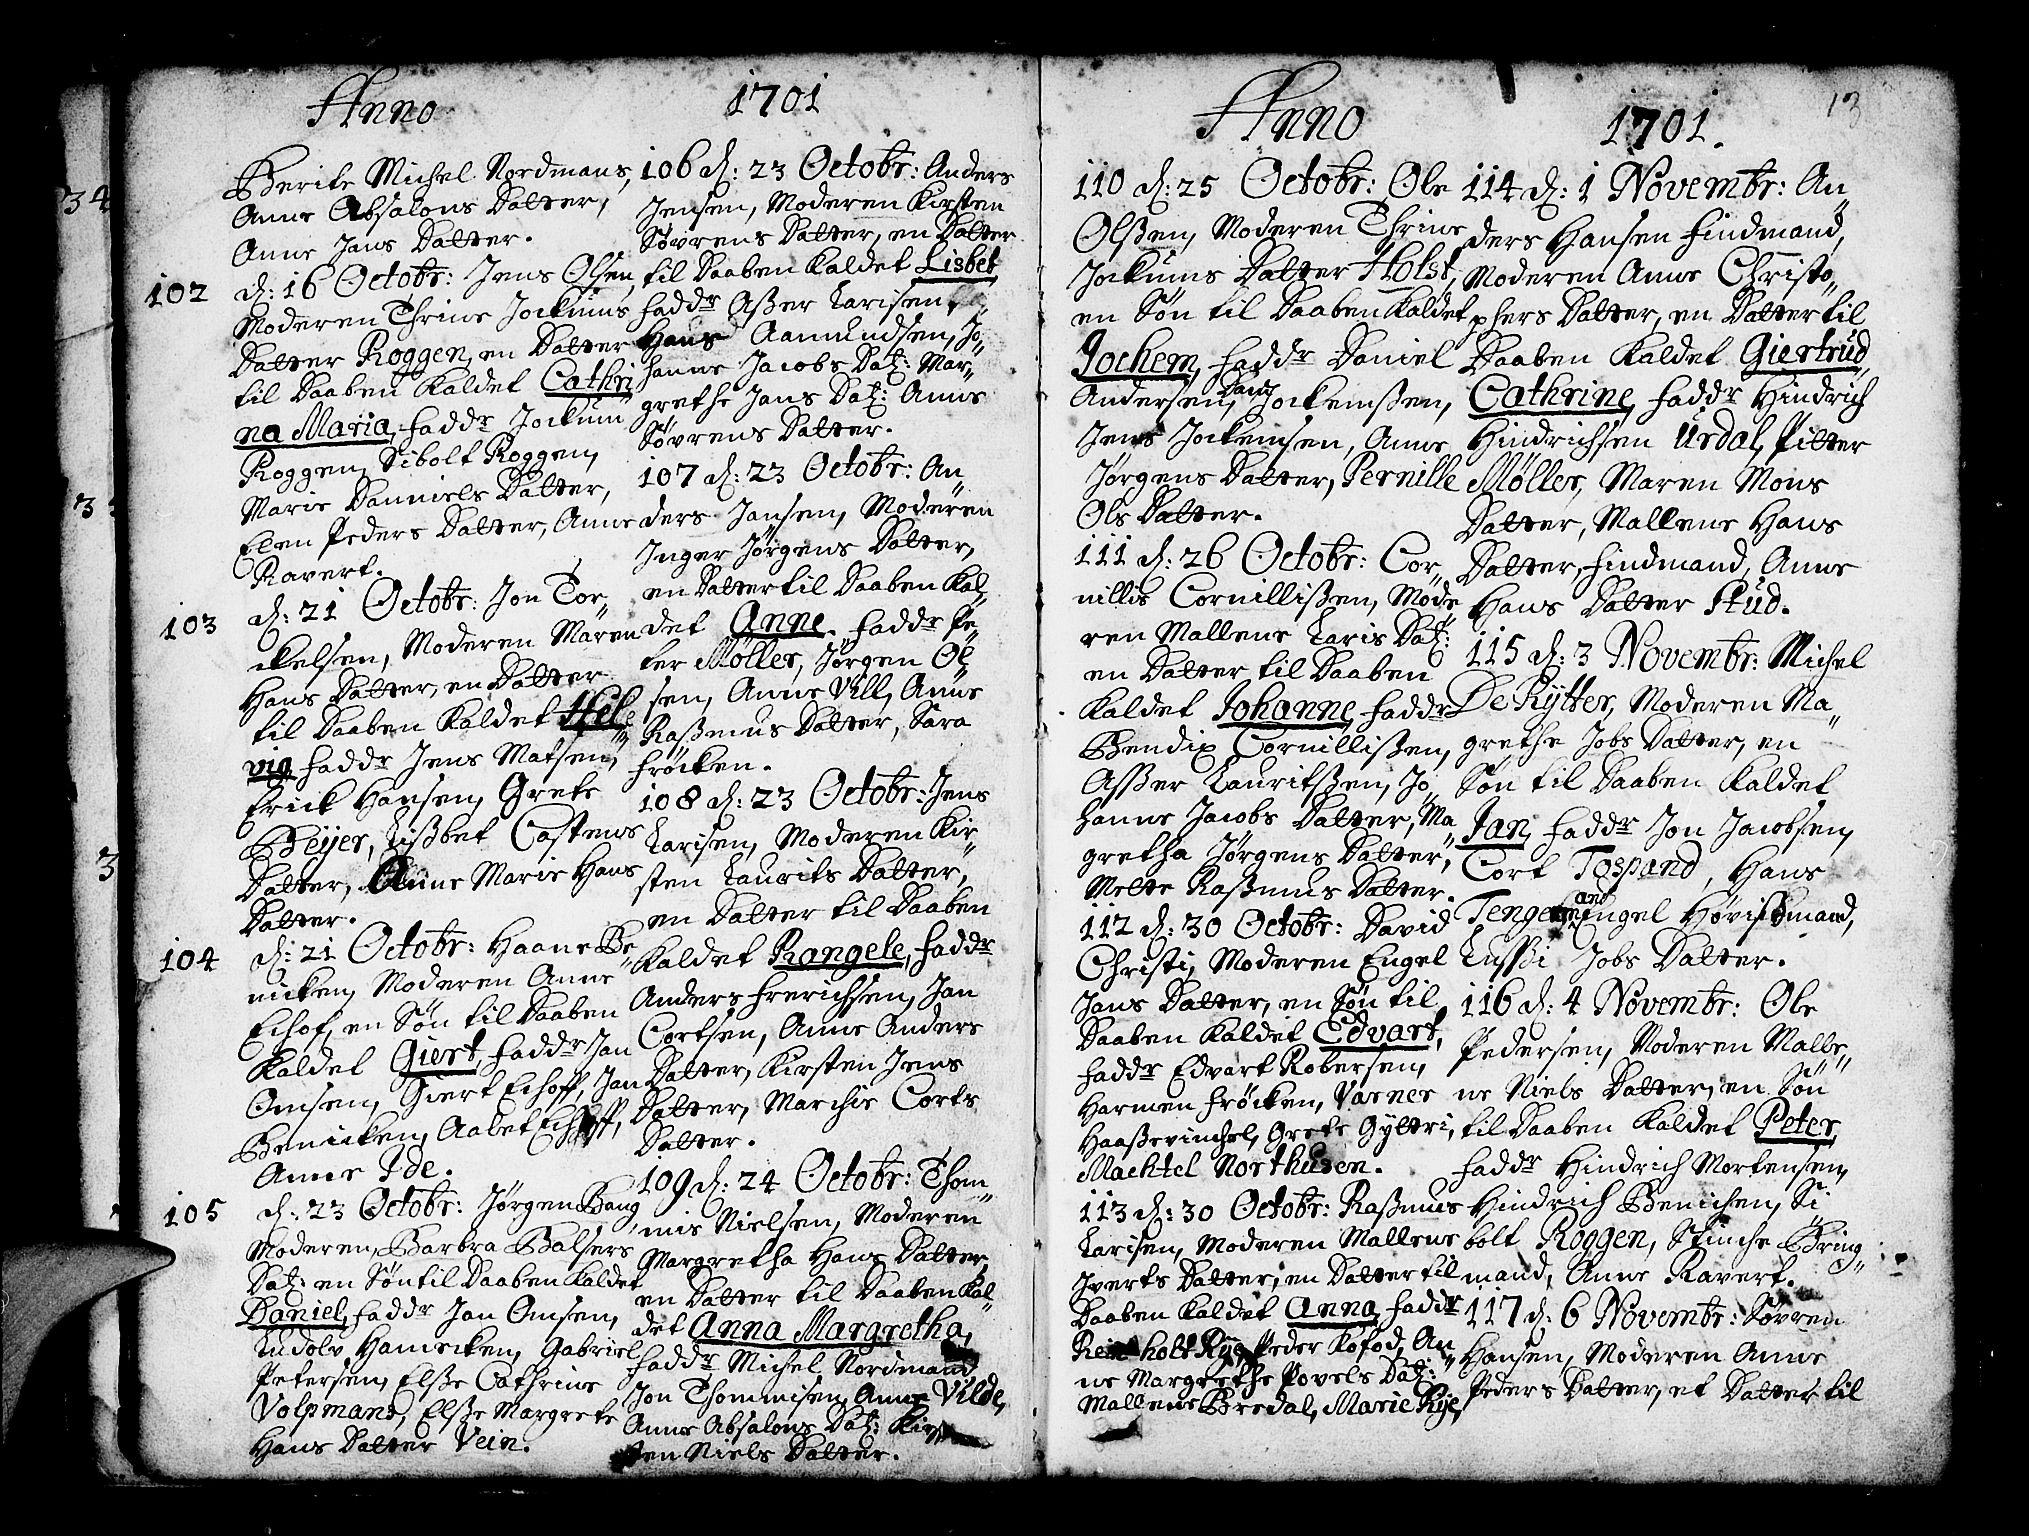 Anno 1701
Berite Michel Nordmans,
Anne Absalons Datter,
Anne Jans Datter.
102 d: 16 Octobr: Jens Olsen,
Moderen Thrine Jockums
Datter Roggen, en Datter
til Daaben Kaldet Cathri
na Maria, Faddr Jockum
Roggen, Sibolt Roggen,
Marie Danniels Datter,
Elen Peders Datter, Anne
Ravert.
103 d: 21 Octobr: Jon Tor„
ckelsen, Moderen Maren
Hans Datter, en Datter
til Daaben Kaldet Hel„
vig, Faddr Jens Matsen,
Erick Hansen, Grete
Beÿer, Lisbet Castens
Datter, Anne Marie Hans
Datter.
104 d: 21 Octobr: Haane Be„
nicken, Moderen Anne
Eihof, en Søn til Daaben
Kaldet Giert, Faddr Jan
Omsen, Giert Eihoff, Jan
Benicken, Aalet Eihoff,
Anne Ide.
105 d: 23 Octobr: Jørgen Bang,
Moderen, Barbra Balsers
Datt: en Søn til Daaben Kaldet
Daniel, Faddr Jan Omsen,
Ludolv Hanicken, Gabriel
Petersen, Elsse Cathrine
Volpmans, Elsse Margrete
Hans Datter Vein.
106 d: 23 Octobr: Anders
Jensen, Moderen Kirsten
Søvrens Datter, en Datter
til Daaben Kaldet Lisbet
Faddr Asser Larisen,
Hans Aamundsen, Jo„
hanne Jacobs Datt: Mar„
grethe Jans Datt: Anne
Søvrens Datter.
107 d: 23 Octobr: An„
ders Jansen, Moderen
Inger Jørgens Datter,
en Datter til Daaben Kal„
det Anne. Faddr Pe„
ter Møller, Jørgen Ol„
sen, Anne Vill, Anne
Rasmus Datter, Sara
Frøcken.
108 d: 23 Octobr: Jens
Larisen, Moderen Kir„
sten Laurits Datter,
en Datter til Daaben
Kaldet Rangele, Faddr
Anders Frerichsen, Jan
Cortsen, Anne Anders
Datter, Kirsten Jens
Datter, Marchie Corts
Datter.
109 d: 24 Octobr: Thom„
mis Nielsen, Moderen
Margretha Hans Datter,
en Datter til Daaben Kal„
det Anna Margretha,
Faddr Michel Nordmand
Jon Thommisen, Anne Vilde,
Anne Absalons Datt: Kir
sten Niels Datter.
Anno 1701. 13
110 d: 25 Octobr: Ole
Olssen, Moderen Thrine
Jockums Datter Holst,
en Søn til Daaben Kaldet
Jochem, Faddr Daniel
Andersen, Jockemssen,
Jens Jockemsen, Anne
Jørgens Datter, Pernille
Ols Datter.
111 d: 26 Octobr: Cor„
nillis Cornillissen, Mode
ren Mallene Laris Datt:
en Datter til Daaben
Kaldet Johanne, Faddr
Bendix Cornillissen,
Asser Lauritssen, Jo„
hanne Jacobs Datter, Ma„
gretha Jørgens Datter,
Mette Rassmus Datter.
112 d: 30 Octobr: David
Christi, Moderen Engel
Jans Datter, en Søn til
Daaben Kaldet Edvart,
Faddr Edvart Robersen,
Harmen Frøcken, Varner
Haassevinchel, Grete Gÿltri,
Machtel Northusen.
113 d: 30 Octobr: Rassmus
Larisen, Moderen Mallene
Iverts Datter, en Datter til
Daaben Kaldet Anna, Faddr
Reinholt Rÿe, Peder Kofod, An„
ne Margrethe Povels Datt:
Mallene Bredal, Marie Rÿe,
114 d: 1 Novembr: An„
ders Hansen Findmand,
Moderen Anne Christo„
phers Datter, en Datter til
Daaben Kaldet Giertrud
Cathrine, Faddr Hindrich
Hindrichsen Urdal, Pitter
Møller, Maren Mons
Datter, Mallene Hans
Datter, Findmand, Anne
Hans Datter Stud.
115 d: 3 Novembr: Michel
De Rÿtter, Moderen Ma„
grethe Jobs Datter, en
Søn til Daaben Kaldet
Jan, Faddr Jon Jacobsen,
Cort Tospand, Hans
Engel Høvishmand,
Lussi Jobs Datter.
116 d: 4 Novembr: Ole
Pedersen, Moderen Malle„
ne Niels Datter, en Søn
til Daaben Kaldet Peter
Faddr Hindrich Mortensen,
Hindrich Benichen, Si
bolt Roggen, Stinche Bring„
mand, Anne Ravert.
117 d: 6 Novembr: Søvren
Hansen, Moderen Anne
Peders Datter, et Datter til
34
3
3